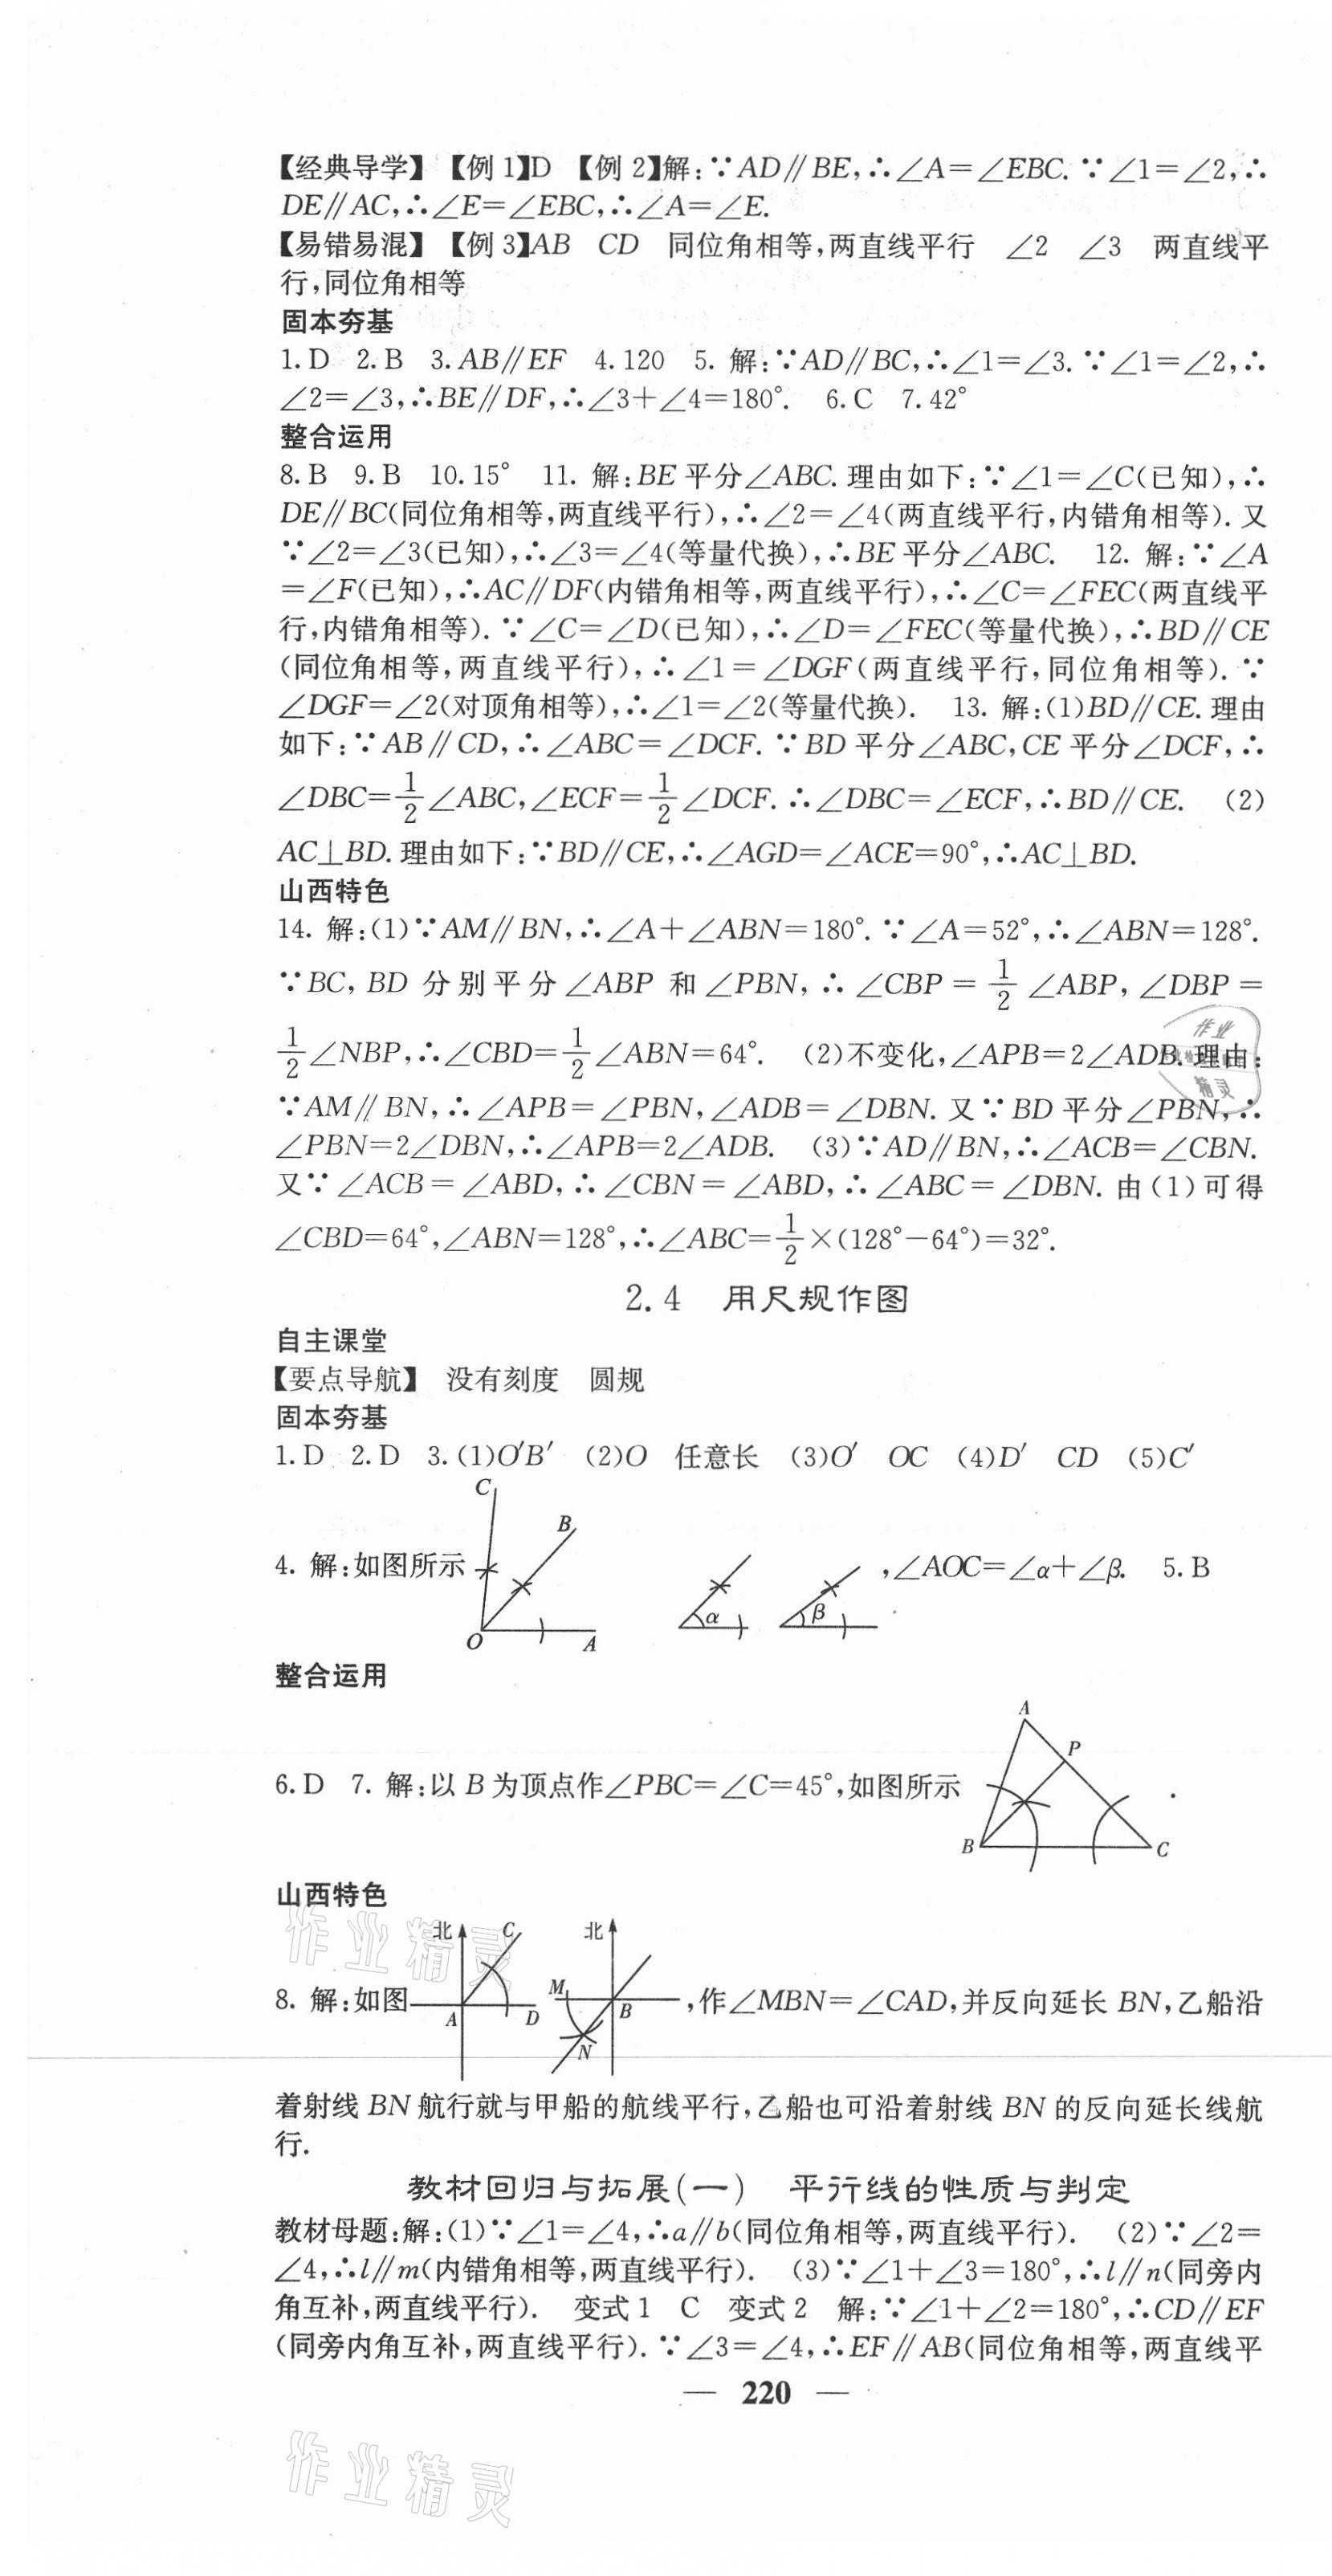 【经典导学】【例1】D 【例2】解:∵AD∥BE,∴∠A=∠EBC.∵∠1=∠2,∴
DE∥AC,∴∠E=∠EBC,∴∠A=∠E.
【易错易混】【例3】AB CD 同位角相等,两直线平行 ∠2 ∠3 两直线平
行,同位角相等
固本夯基
1.D 2.B 3.AB∥EF 4.120 5. 解:∵AD∥BC,∴∠1=∠3.∵∠1=∠2,∴
∠2=∠3,∴BE∥DF,∴∠3+∠4=180°. 6.C 7.42°
整合运用
8.B 9.B 10.15° 11. 解:BE平分∠ABC.理由如下:∵∠1=∠C(已知),∴
DE∥BC(同位角相等,两直线平行),∴∠2=∠4(两直线平行,内错角相等).又
∵∠2=∠3(已知),∴∠3=∠4(等量代换),∴BE平分∠ABC. 12. 解:∵∠A
=∠F(已知),∴AC∥DF(内错角相等,两直线平行),∴∠C=∠FEC(两直线平
行,内错角相等).∵∠C=∠D(已知),∴∠D=∠FEC(等量代换),∴BD∥CE
(同位角相等,两直线平行),∴∠1=∠DGF(两直线平行,同位角相等).∵
∠DGF=∠2(对顶角相等),∴∠1=∠2(等量代换). 13. 解:(1)BD∥CE.理由
如下:∵AB∥CD,∴∠ABC=∠DCF.∵BD平分∠ABC,CE平分∠DCF,∴
∠DBC=1/2∠ABC,∠ECF=1/2∠DCF.∴∠DBC=∠ECF,∴BD∥CE. (2)
AC⊥BD.理由如下:∵BD∥CE,∴∠AGD=∠ACE=90°,∴AC⊥BD.
山西特色
14. 解:(1)∵AM∥BN,∴∠A+∠ABN=180°.∵∠A=52°,∴∠ABN=128°.
∵BC,BD分别平分∠ABP和∠PBN,∴∠CBP=1/2∠ABP,∠DBP=
1/2∠NBP,∴∠CBD=1/2∠ABN=64°. (2)不变化,∠APB=2∠ADB.理由:
∵AM∥BN,∴∠APB=∠PBN,∠ADB=∠DBN.又∵BD平分∠PBN,∴
∠PBN=2∠DBN,∴∠APB=2∠ADB. (3)∵AD∥BN,∴∠ACB=∠CBN.
又∵∠ACB=∠ABD,∴∠CBN=∠ABD,∴∠ABC=∠DBN.由(1)可得
∠CBD=64°,∠ABN=128°,∴∠ABC=1/2×(128°-64°)=32°.
作业
精灵
2.4 用尺规作图
自主课堂
【要点导航】 没有刻度 圆规
固本夯基
1.D 2.D 3.(1)O′B′ (2)O 任意长 (3)O′ OC (4)D′ CD (5)C′
C
B
4. 解:如图所示 ,∠AOC=∠α+∠β. 5.B
α β
O A
整合运用
A
P
6.D 7. 解:以B为顶点作∠PBC=∠C=45°,如图所示 .
B C
山西特色
作业精灵
北 C 北
M
8. 解:如图 ,作∠MBN=∠CAD,并反向延长BN,乙船沿
A D B
N
着射线BN航行就与甲船的航线平行,乙船也可沿着射线BN的反向延长线航
行.
教材回归与拓展(一) 平行线的性质与判定
教材母题:解:(1)∵∠1=∠4,∴a∥b(同位角相等,两直线平行). (2)∵∠2=
∠4,∴l∥m(内错角相等,两直线平行). (3)∵∠1+∠3=180°,∴l∥n(同旁内
角互补,两直线平行). 变式1 C 变式2 解:∵∠1+∠2=180°,∴CD∥EF
(同旁内角互补,两直线平行).∵∠3=∠4,∴EF∥AB(同位角相等,两直线平
— 220 —
作业精灵